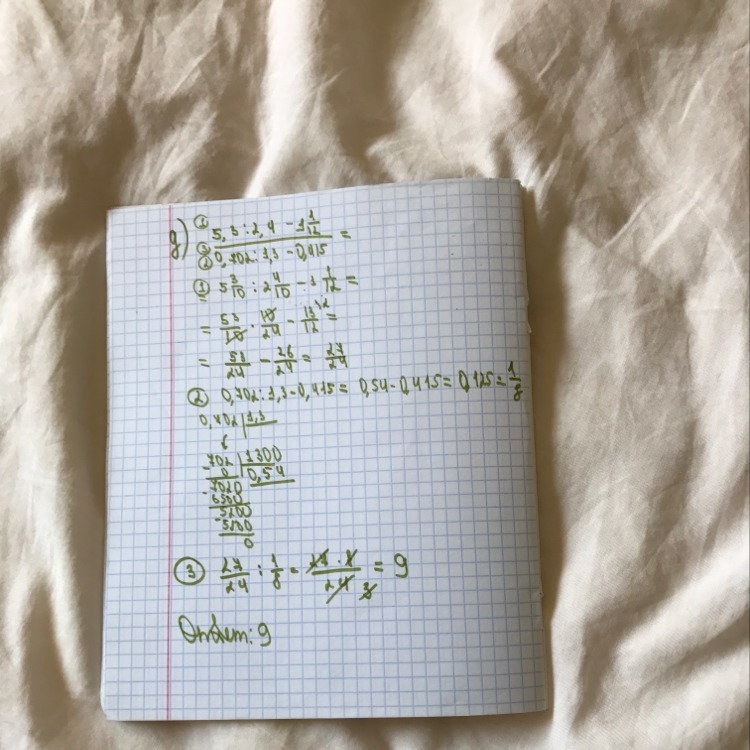 g) ① 5,3 : 2,4 - 1 1/12
③ ――― =
② 0,702 : 1,3 - 0,415
① 5 3/10 : 2 4/10 - 1 1/12 =
= 53/10 · 10/24 - 13/12 \2 =
= 53/24 - 26/24 = 27/24
② 0,702 : 1,3 - 0,415 = 0,54 - 0,415 = 0,125 = 1/8
0,702 | 1,3
702 | 1300
0 | 0,54
-7020
6500
-5200
5200
0
③ 27/24 : 1/8 = 27 · 8/24 3 = 9
Ответ: 9